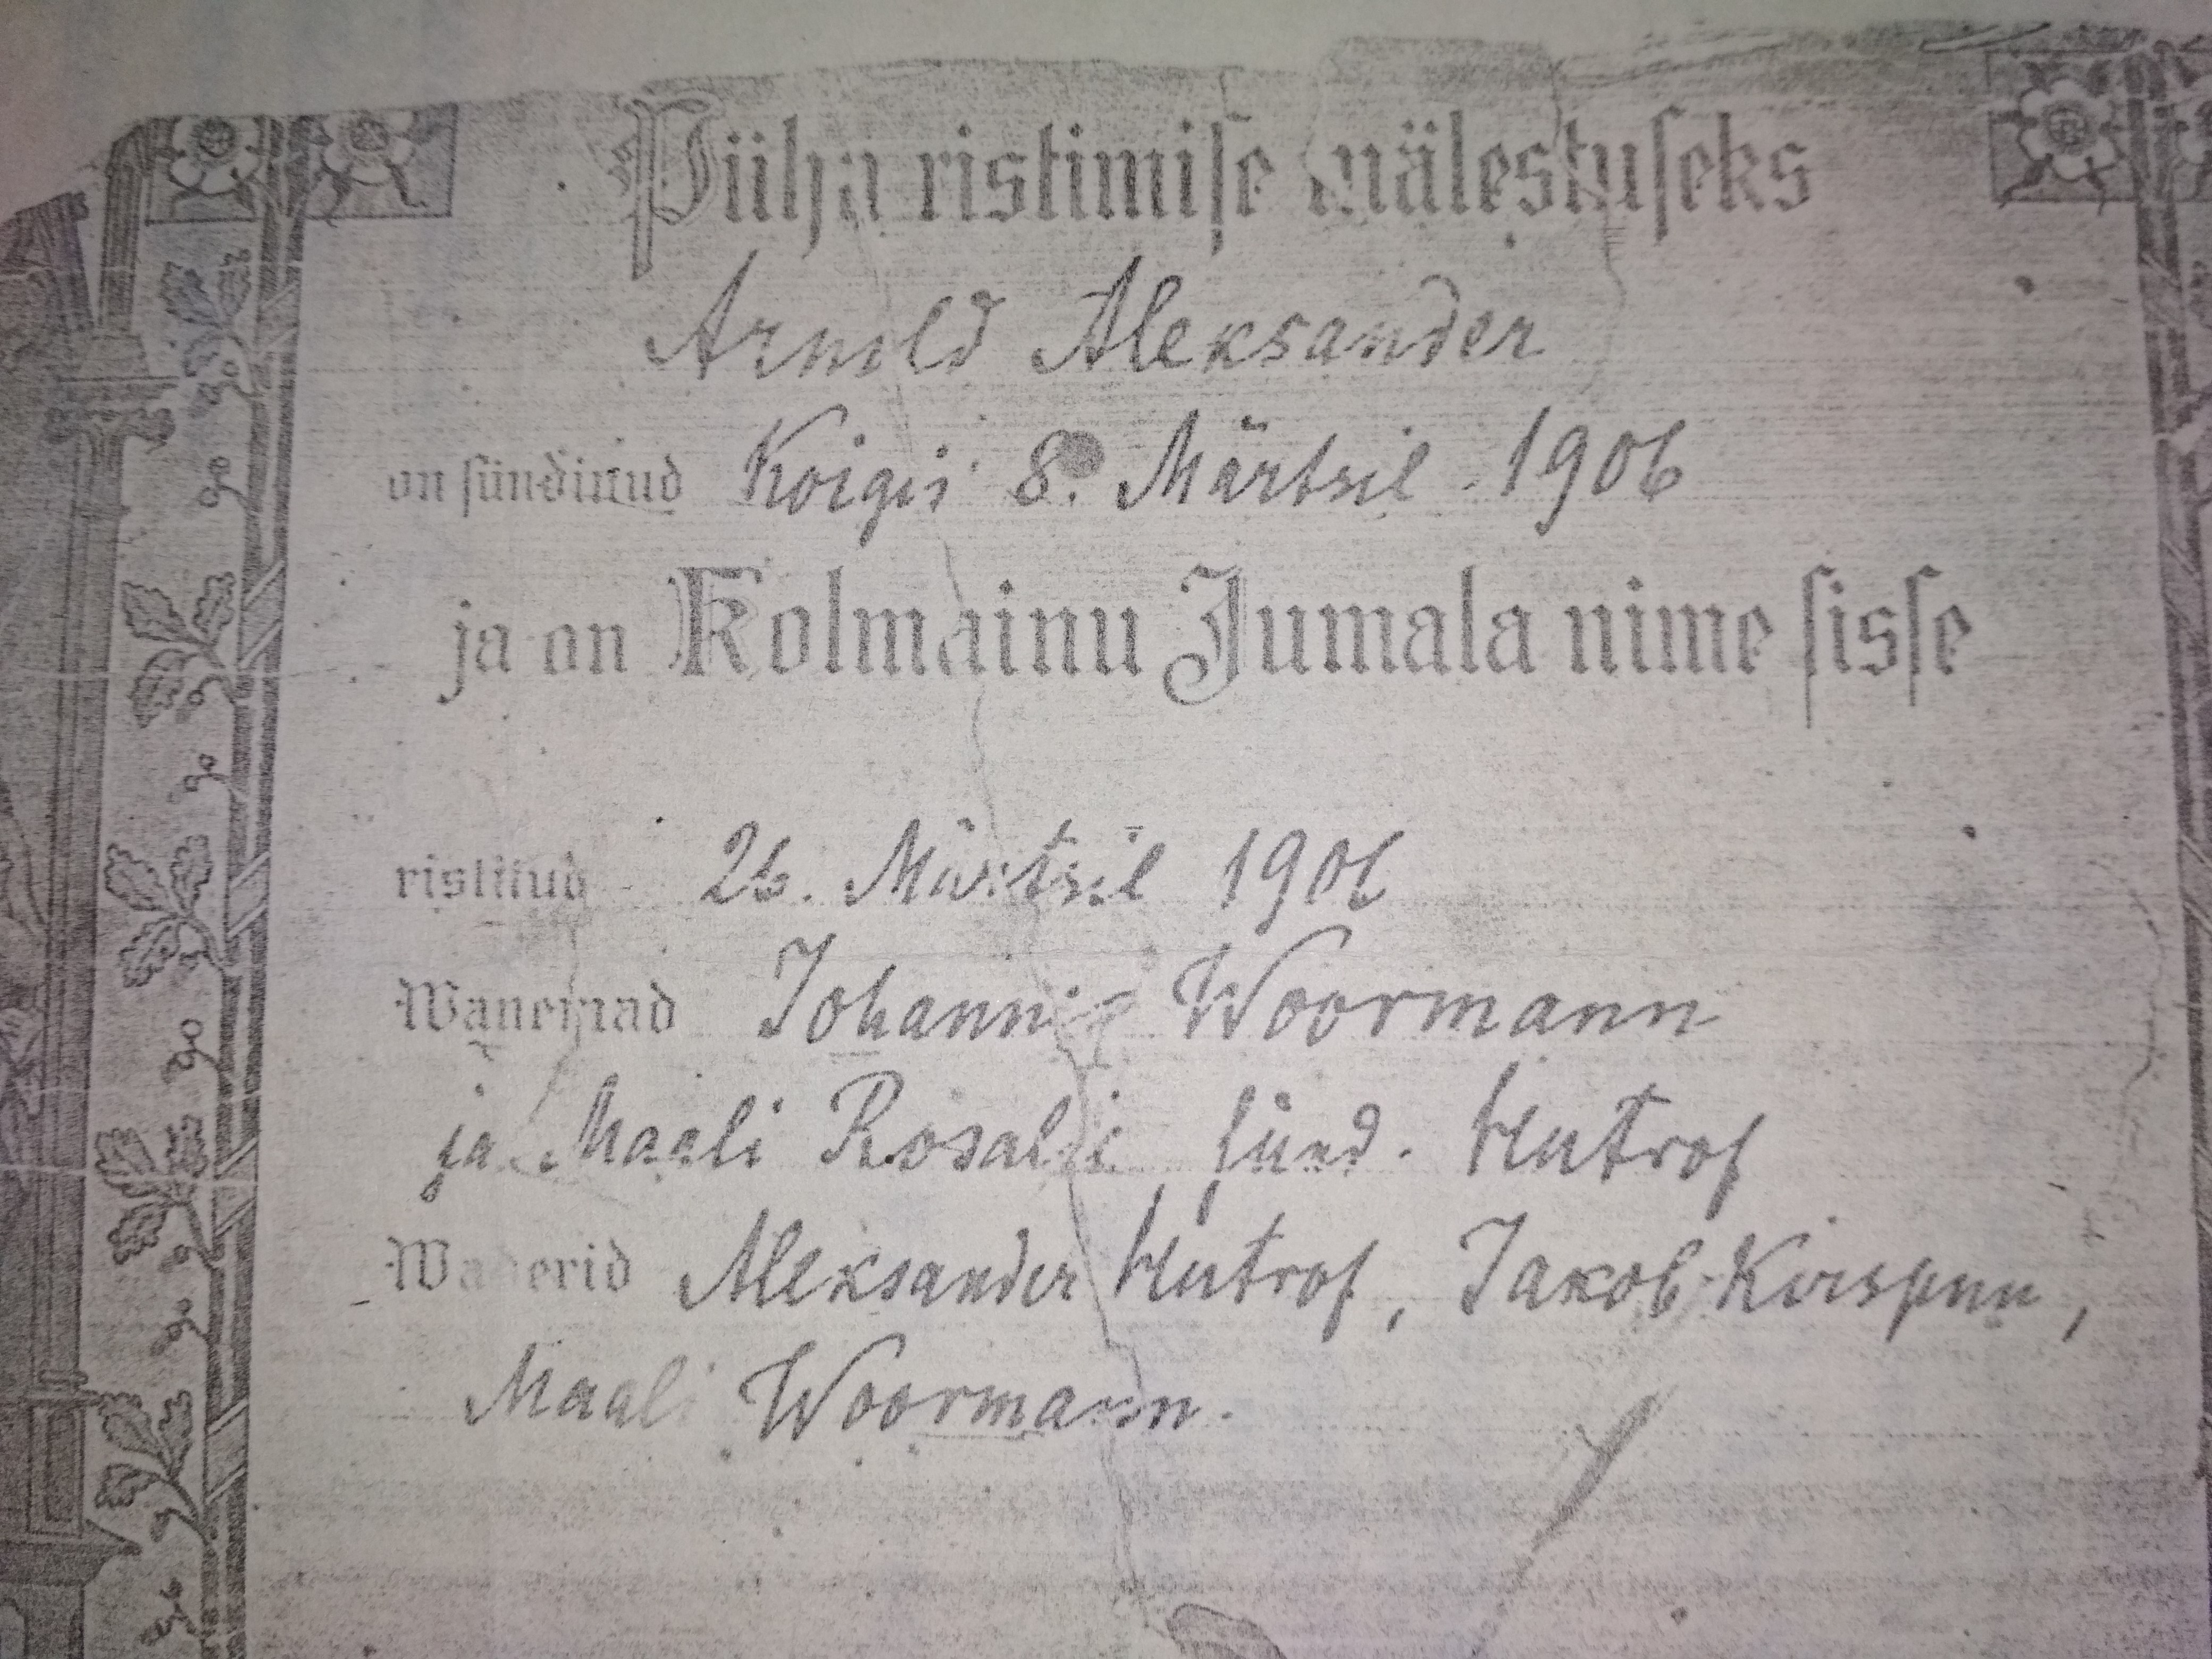 Püha ristimise mälestuseks
Arnold Aleksander
on sündinud Koigis 8. Märtsil 1906
ja on Kolmainu Jumala nime sisse
ristitud 26. Märtsil 1906
Wanemad Johannes Woormann
ja Maali Rosalie sünd. Hutrof
Waderid Aleksander Hutrof, Jakob Kirspuu,
Maali Woormann.